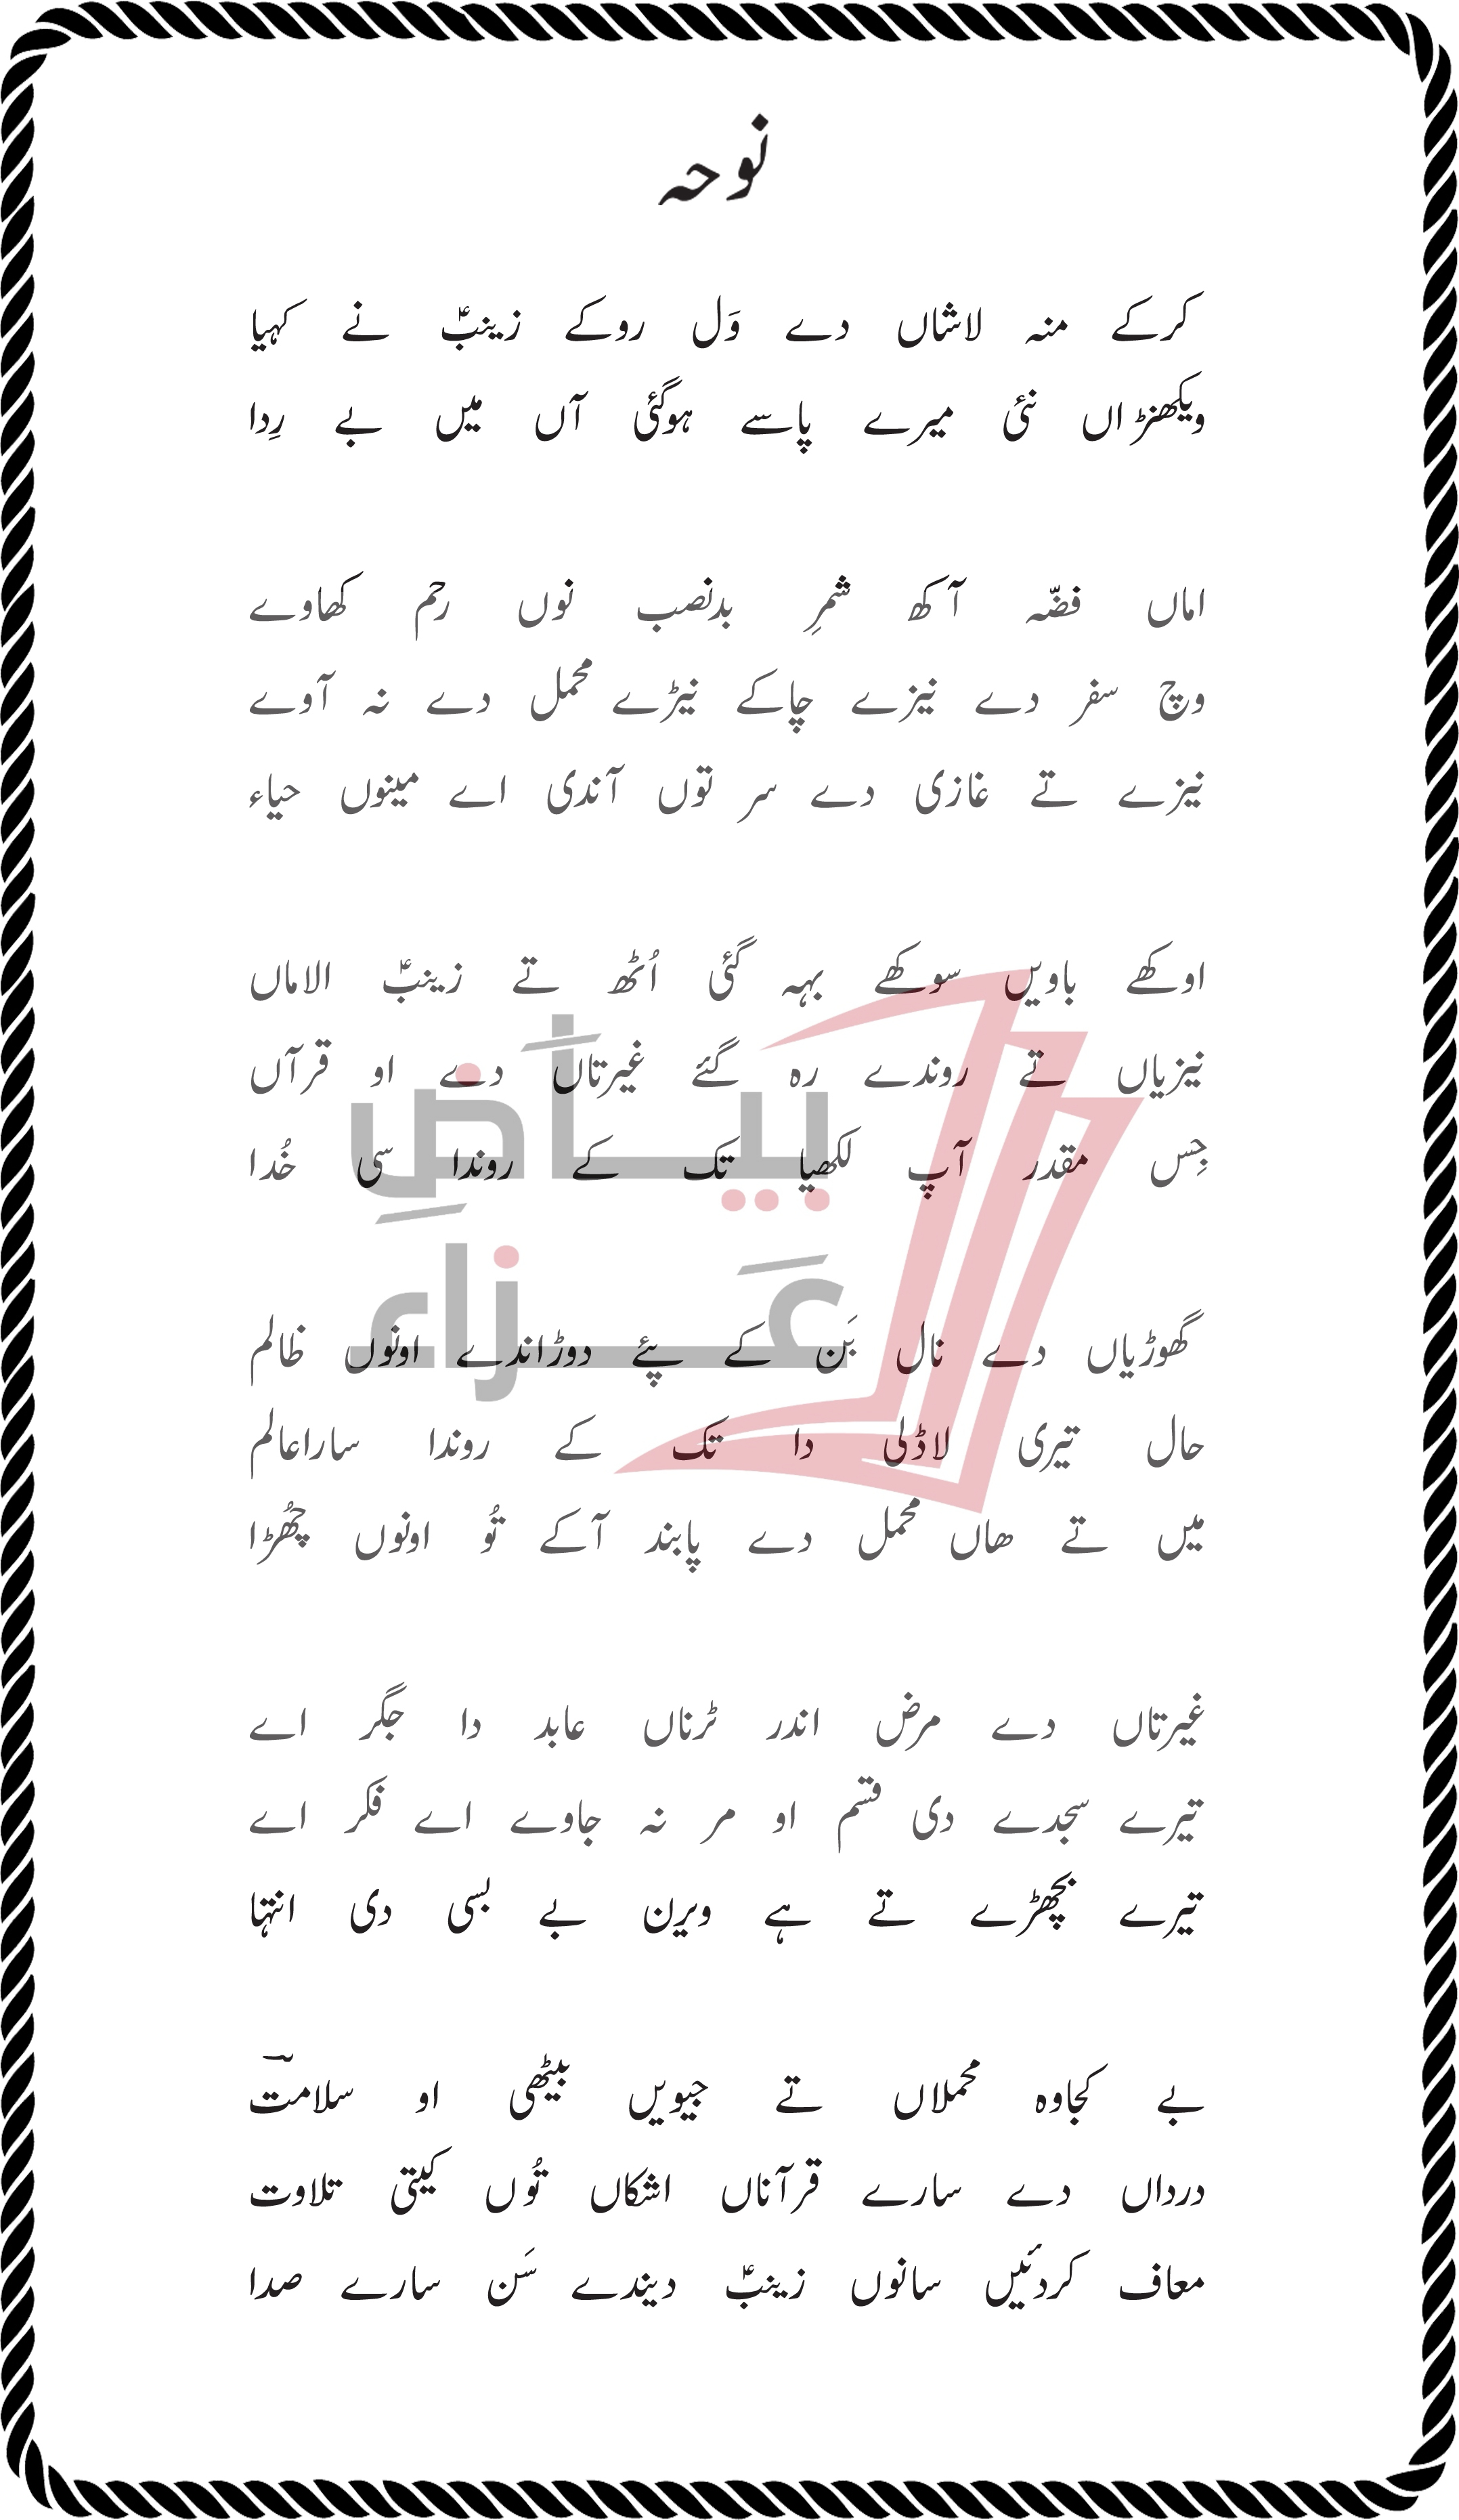 نوحہ
کرکے منہ لاشاں دے وَل روکے زینبؑ نے کہیا
ویکھنڑاں نئی میرے پاسے ہوگئی آں میں بے رِدا
اماں فضّہ آکھ شمرِ بدنصب نوں رحم کھاوے
وچ سفر دے نیزے چاکے نیڑے محمل دے نہ آوے
نیزے تے غازی دے سر توں آندی اے مینوں حیاء
اوکھے باویں سوکھے بہہ گئی اُٹھ تے زینبؑ الاماں
نیزیاں تے روندے رہ گئے غیرتاں دے او قرآں
جِس مقدر آپ لکھیا تک کے روندا سی خُدا
بیاضِ
عَزاء
گھوڑیاں دے نال بَن کے پئے دوڑاندے اونوں ظالم
حال تیری لاڈلی دا تک کے روندا ساراعالم
میں تے ھاں محمل دے پابند آکے تُو اونوں چھُڑا
غیرتاں دے مرض اندر ٹرناں عابد دا جگر اے
تیرے سجدے دی قسم او مر نہ جاوے اے فکر اے
تیرے بچھڑے تے ہے ویرن بے بسی دی انتہا
بے کجاوہ محملاں تے جیویں بیٹھی او سلامتؔ
درداں دے سارے قرآناں اشکاں تُوں کیتی تلاوت
معاف کردئیں سانوں زینبؑ دیندے سَن سارے صدا